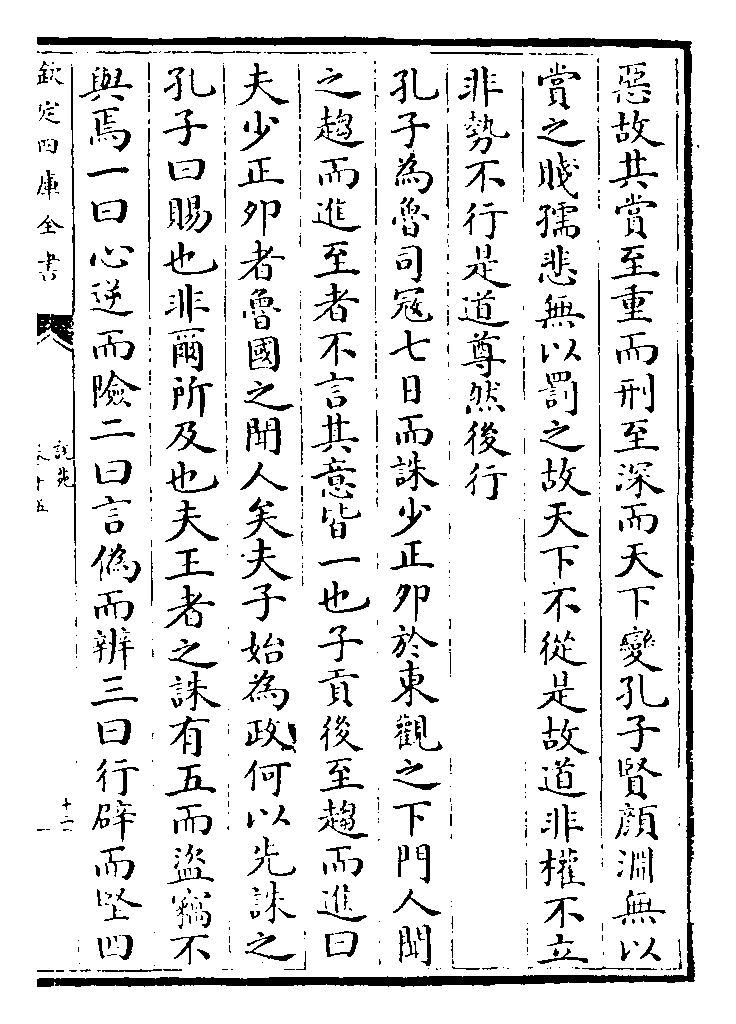 惡故其賞至重而刑至深而天下變孔子賢顔淵無以
賞之賤孺悲無以罰之故天下不從是故道非權不立
非勢不行是道尊然後行
孔子為魯司寇七日而誅少正卯於東觀之下門人聞
之趨而進至者不言其意皆一也子貢後至趨而進曰
夫少正卯者魯國之聞人矣夫子始為政何以先誅之
孔子曰賜也非爾所及也夫王者之誅有五而盜竊不
與焉一曰心逆而險二曰言偽而辨三曰行辟而堅四
欽定四庫全書
說苑
卷十五
十二